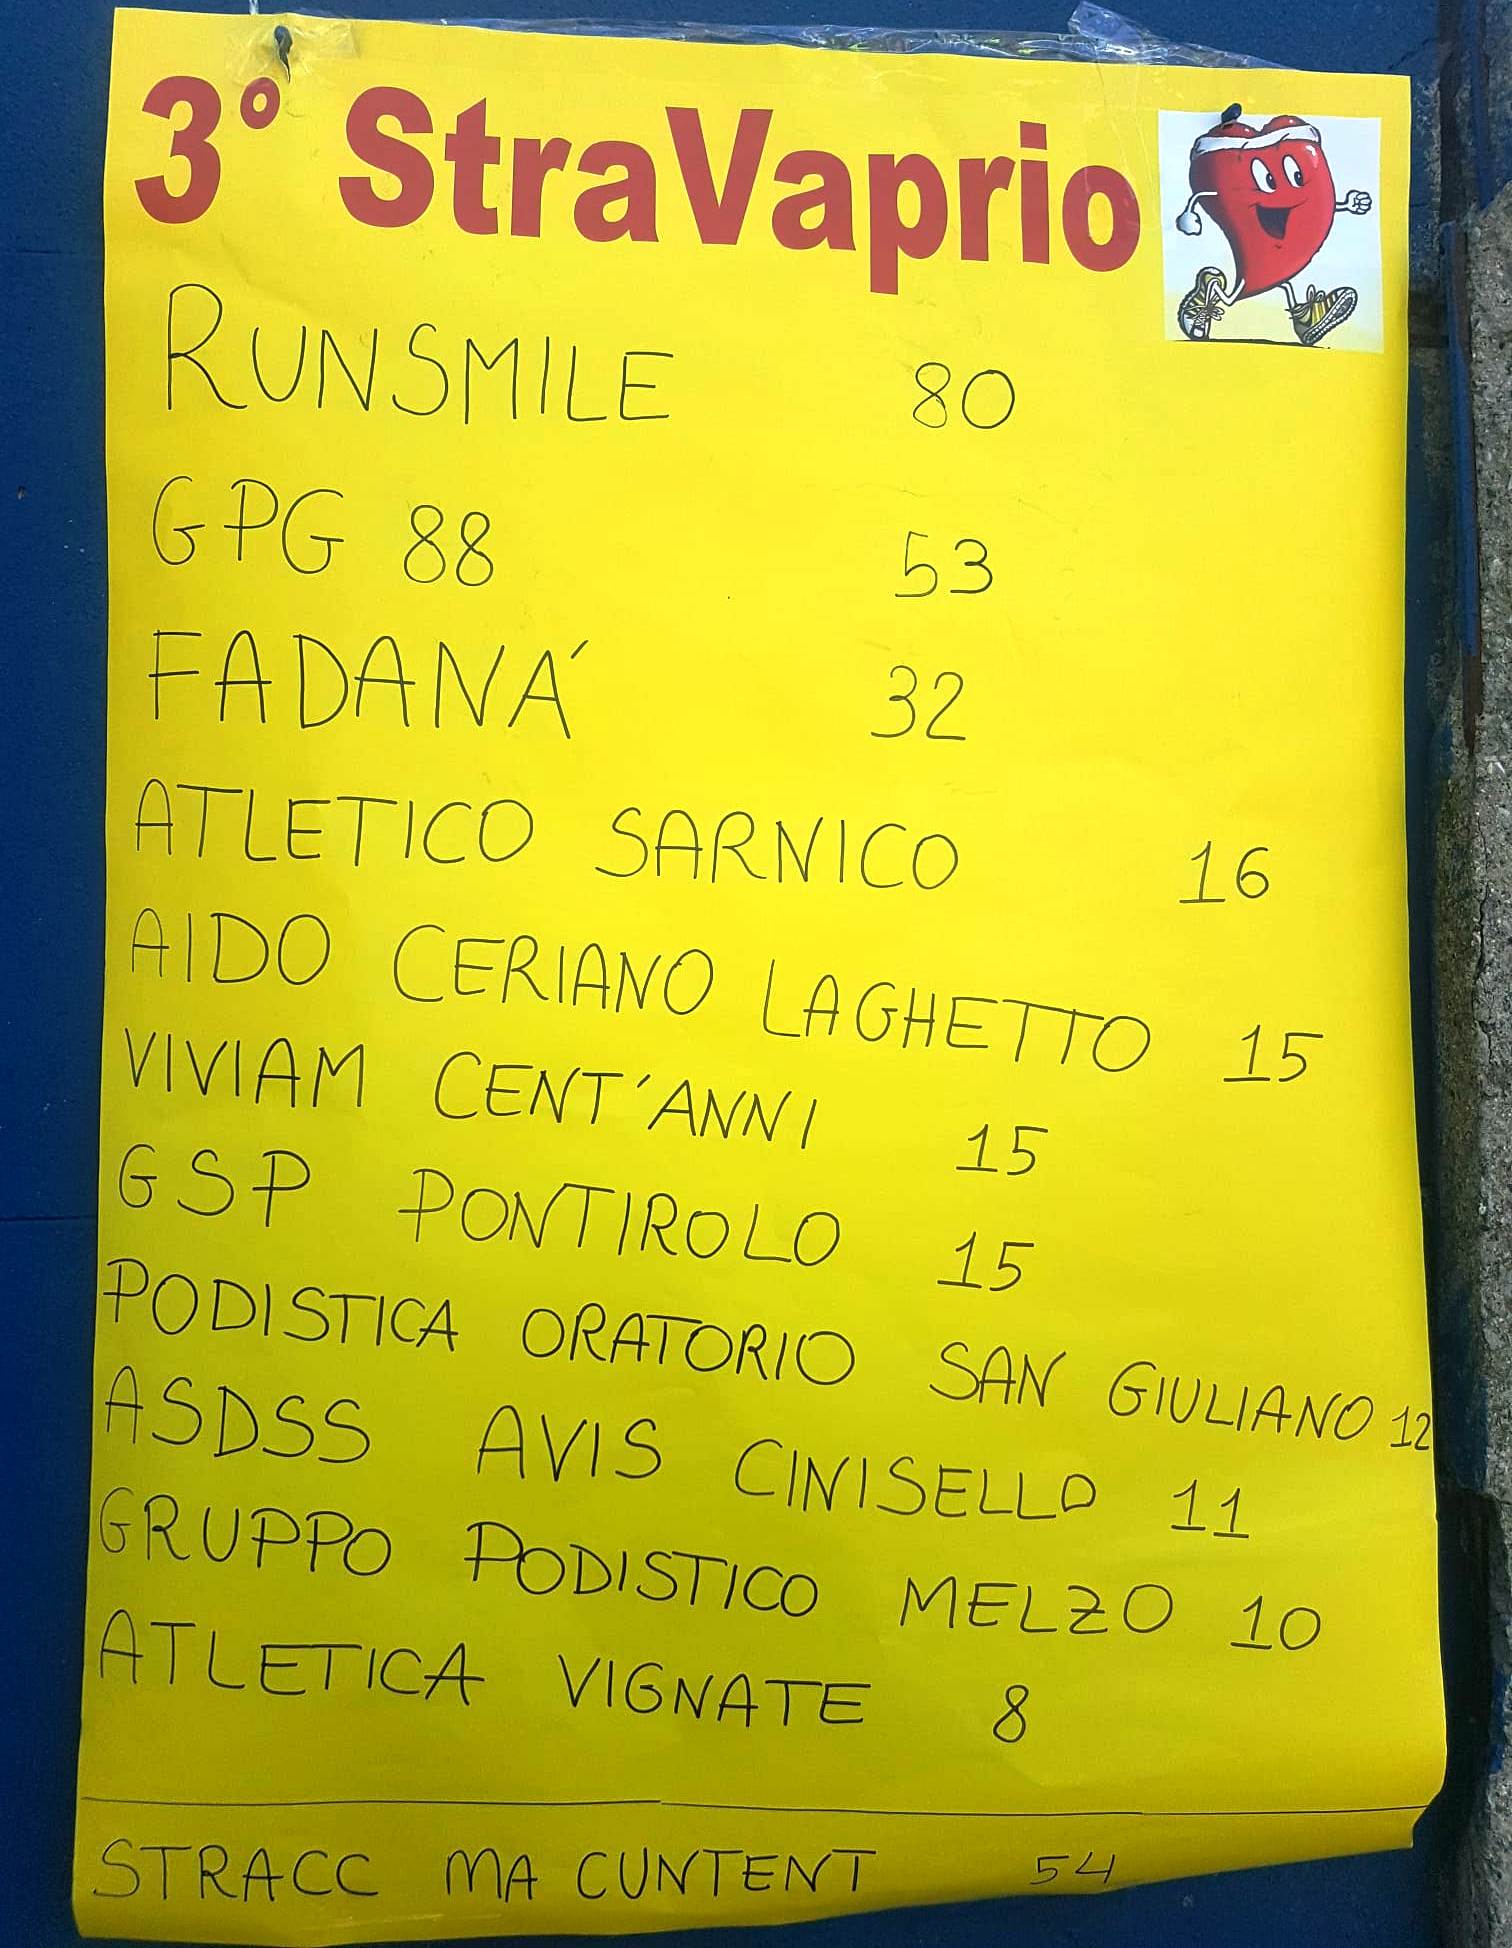 3° StraVaprio
RUNSMILE 80
GPG 88 53
FADANÁ 32
ATLETICO SARNICO 16
AIDO CERIANO LAGHETTO 15
VIVIAM CENT'ANNI 15
GSP PONTIROLO 15
PODISTICA ORATORIO SAN GIULIANO 12
ASDSS AVIS CINISELLO 11
GRUPPO PODISTICO MELZO 10
ATLETICA VIGNATE 8
STRACC MA CUNTENT 54